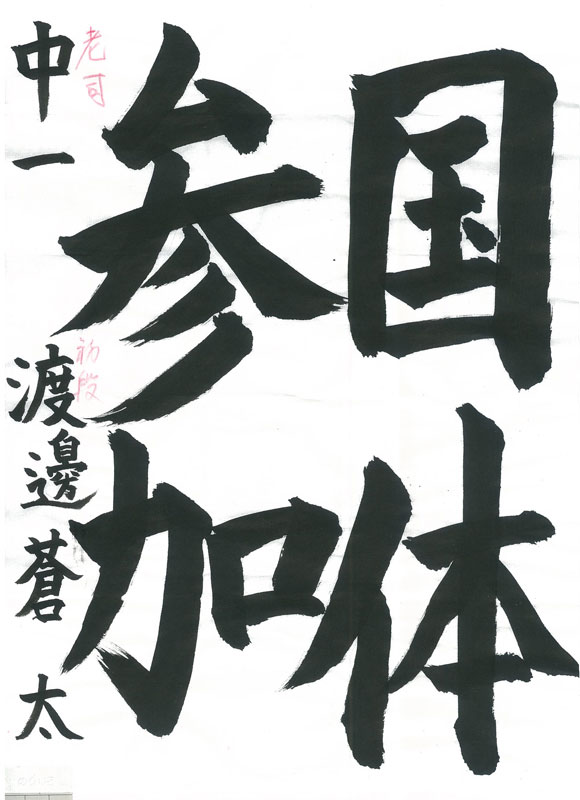 国体
参加
中一 渡邊蒼太
老司
初段